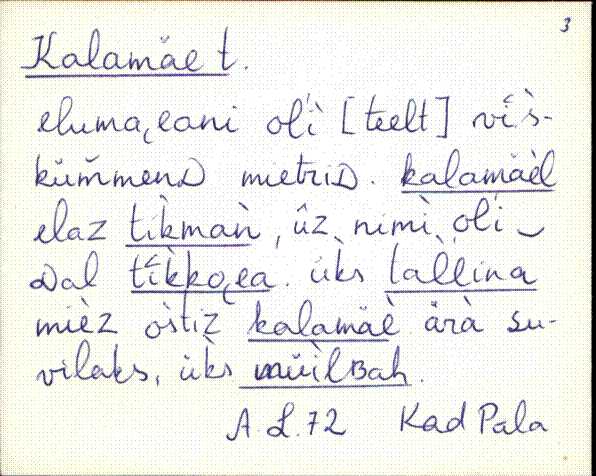 3
Kalamäe t.
eluma֊eani oĺì [teelt] víìs-
kümmenᴅ mietriᴅ. kalamäèl
elaz tìkmaǹ, ûz nimì olí
ᴅal tíkko֊ea. üks tallina
mièz òstiz kalamäè ärà su-
vilaks, üks müìlʙah.
A. L. 72 Kad Pala